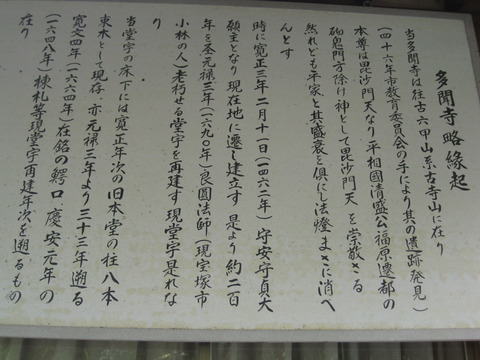 多聞寺略縁起
当多聞寺は往古六甲山系古寺山に在り
(四十六年市教育委員会の手により其の遺跡発見)
本尊は毘沙門天なり平相國清盛公福原遷都の
砌鬼門方除け神として毘沙門天を崇敬さる
然れども平家と其盛衰と倶にし法燈まさに消へ
んとす
時に寛正三年二月十一日(一四六二年)守安守貞大
願主となり現在地に遷し建立す是より約二百
年を歪元禄三年(一六九〇年)良圓法師(現宝塚市
小林の人)老朽せる堂宇を再建す現堂宇是れな
り
当堂宇の床下には寛正年次の旧本堂の柱八本
束木として現存、亦元禄三年より三十三年遡る
寛文四年(一六六四年)在銘の鰐口、慶安元年の
(一六四八年)棟札等現堂宇再建年次を遡るもの
在り